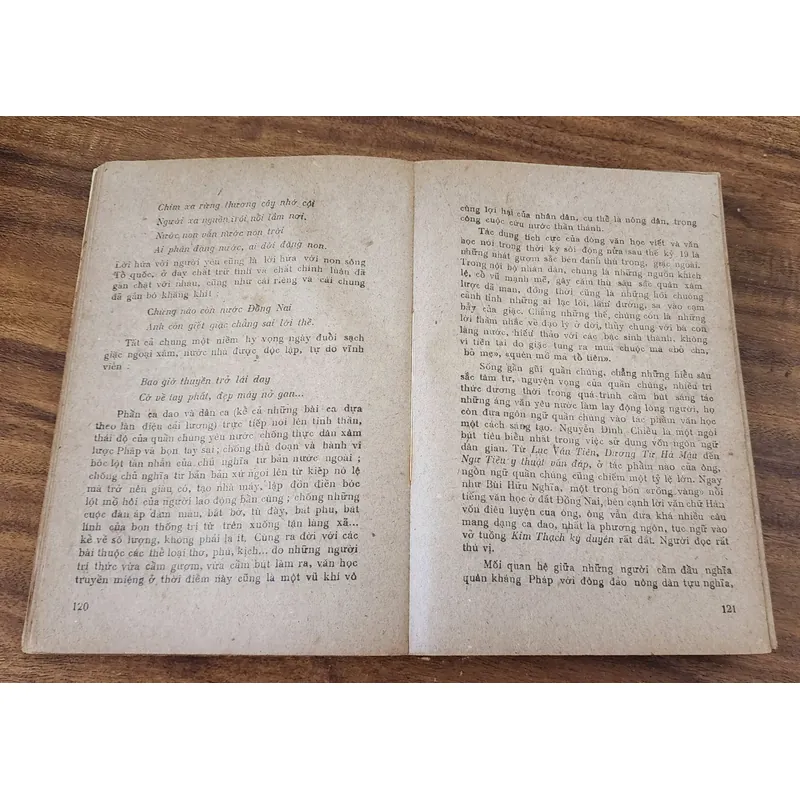 Chim xa rừng thương cây nhớ cội
Người xa nguồn trói nồi lắm nơi,
Nước non vẫn nước non trời
Ai phân đặng nước, ai dời đặng non.
Lời hứa với người yêu cũng là lời hứa với non sông
Tổ quốc, ở đây chất trữ tình và chất chính luận đã
gắn chặt với nhau, cũng như cái riêng và cái chung
đã gắn bó khăng khít :
Chừng nào còn nước Đồng Nai
Anh còn giết giặc chẳng sai lời thề.
Tất cả chung một niềm hy vọng ngày đuổi sạch
giặc ngoại xâm, nước nhà được độc lập, tự do vĩnh
viễn :
Bao giờ thuyền trở lái day
Cờ về tay phất, đẹp mày nở gan...
Phần ca dao và dân ca (kể cả những bài ca dựa
theo làn điệu cải lương) trực tiếp nói lên tinh thần,
thái độ của quần chúng yêu nước, chống thực dân xâm
lược Pháp và bọn tay sai ; chống thủ đoạn và hành vi
bóc lột tàn nhẫn của chủ nghĩa tư bản nước ngoài ;
chống chủ nghĩa tư bản bản xứ ngoi lên từ kiếp nô lệ
mà trở nên giàu có, tạo nhà máy, lập đồn điền bóc
lột mồ hôi của người lao động bần cùng ; chống những
cuộc đàn áp đẫm máu, bắt bớ, tù đày, bắt phu, bắt
lính của bọn thống trị từ trên xuống tận làng xã...
kể về số lượng, không phải là ít. Cùng ra đời với các
bài thuộc các thể loại thơ, phú, kịch... do những người
trí thức vừa cầm gươm, vừa cầm bút làm ra, văn học
truyền miệng ở thời điểm này cũng là một vũ khí vô
120
cùng lợi hại của nhân dân, cụ thể là nông dân, trong
công cuộc cứu nước thần thánh.
Tác dụng tích cực của dòng văn học viết và văn
học nói trong thời kỳ sôi động nửa sau thế kỷ 19 là
những nhát gươm sắc bén đánh thù trong, giặc ngoài.
Trong nội bộ nhân dân, chúng là những nguồn khích
lệ, cổ vũ mạnh mẽ, gây căm thù sâu sắc quân xâm
lược dã man, đồng thời cũng là những hồi chuông
cảnh tỉnh những ai lạc lối, lầm đường, sa vào cạm
bẫy của giặc. Chẳng những thế, chúng còn là những
lời thầm nhắc về đạo lý ở đời, thủy chung với bà con
làng nước, hiếu thảo với các bậc sinh thành, không
vì tiền tài do giặc tung ra mua chuộc mà «bỏ cha,
bỏ mẹ», «quên mồ mả tổ tiên».
Sống gần gũi quần chúng, chẳng những hiểu sâu
sắc tâm tư, nguyện vọng của quần chúng, nhiều trí
thức đương thời trong quá trình cầm bút sáng tác
những áng văn yêu nước làm lay động lòng người, họ
còn đưa ngôn ngữ quần chúng vào tác phẩm văn học
một cách sáng tạo. Nguyễn Đình Chiểu là một ngòi
bút tiêu biểu nhất trong việc sử dụng vốn ngôn ngữ
dân gian. Từ Lục Vân Tiên, Dương Từ Hà Mậu đến
Ngư Tiều y thuật vấn đáp, ở tác phẩm nào của ông,
ngôn ngữ quần chúng cũng chiếm một tỷ lệ lớn. Ngay
như Bùi Hữu Nghĩa, một trong bốn «rồng vàng» nổi
tiếng văn học ở đất Đồng Nai, bên cạnh lời văn chữ Hán
vốn điêu luyện của ông, ông vẫn đưa khá nhiều câu
mang dạng ca dao, nhất là phương ngôn, tục ngữ vào
vở tuồng Kim Thạch kỳ duyên rất đắt. Người đọc rất
thú vị.
Mối quan hệ giữa những người cầm đầu nghĩa
quân kháng Pháp với đông đảo nông dân tựu nghĩa,
121